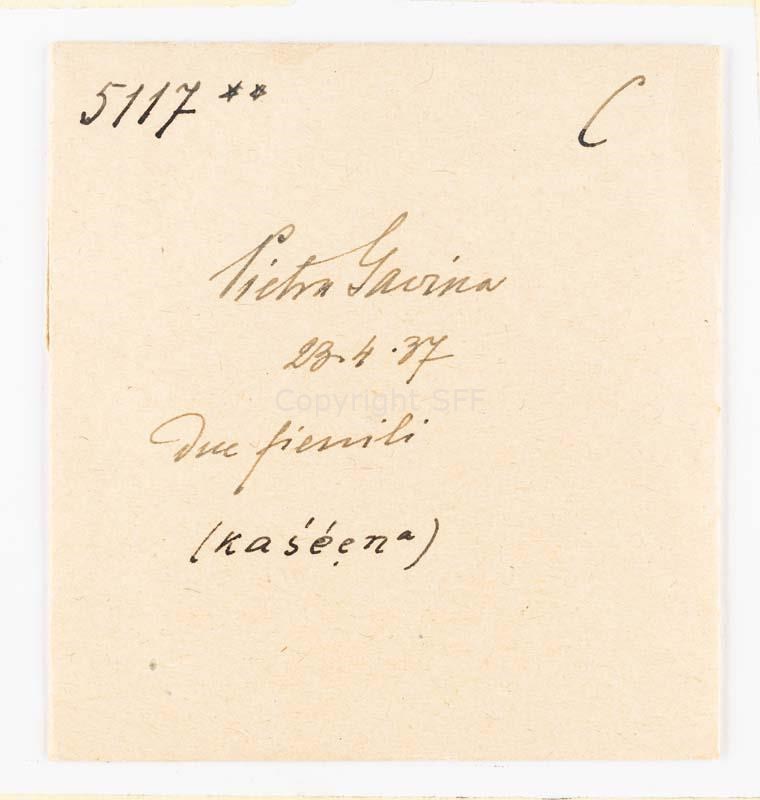 5117 ** C
Pietra Gavina
23.4.37
Copyright SFF
Due fienili
(kaśéẹnᵃ)